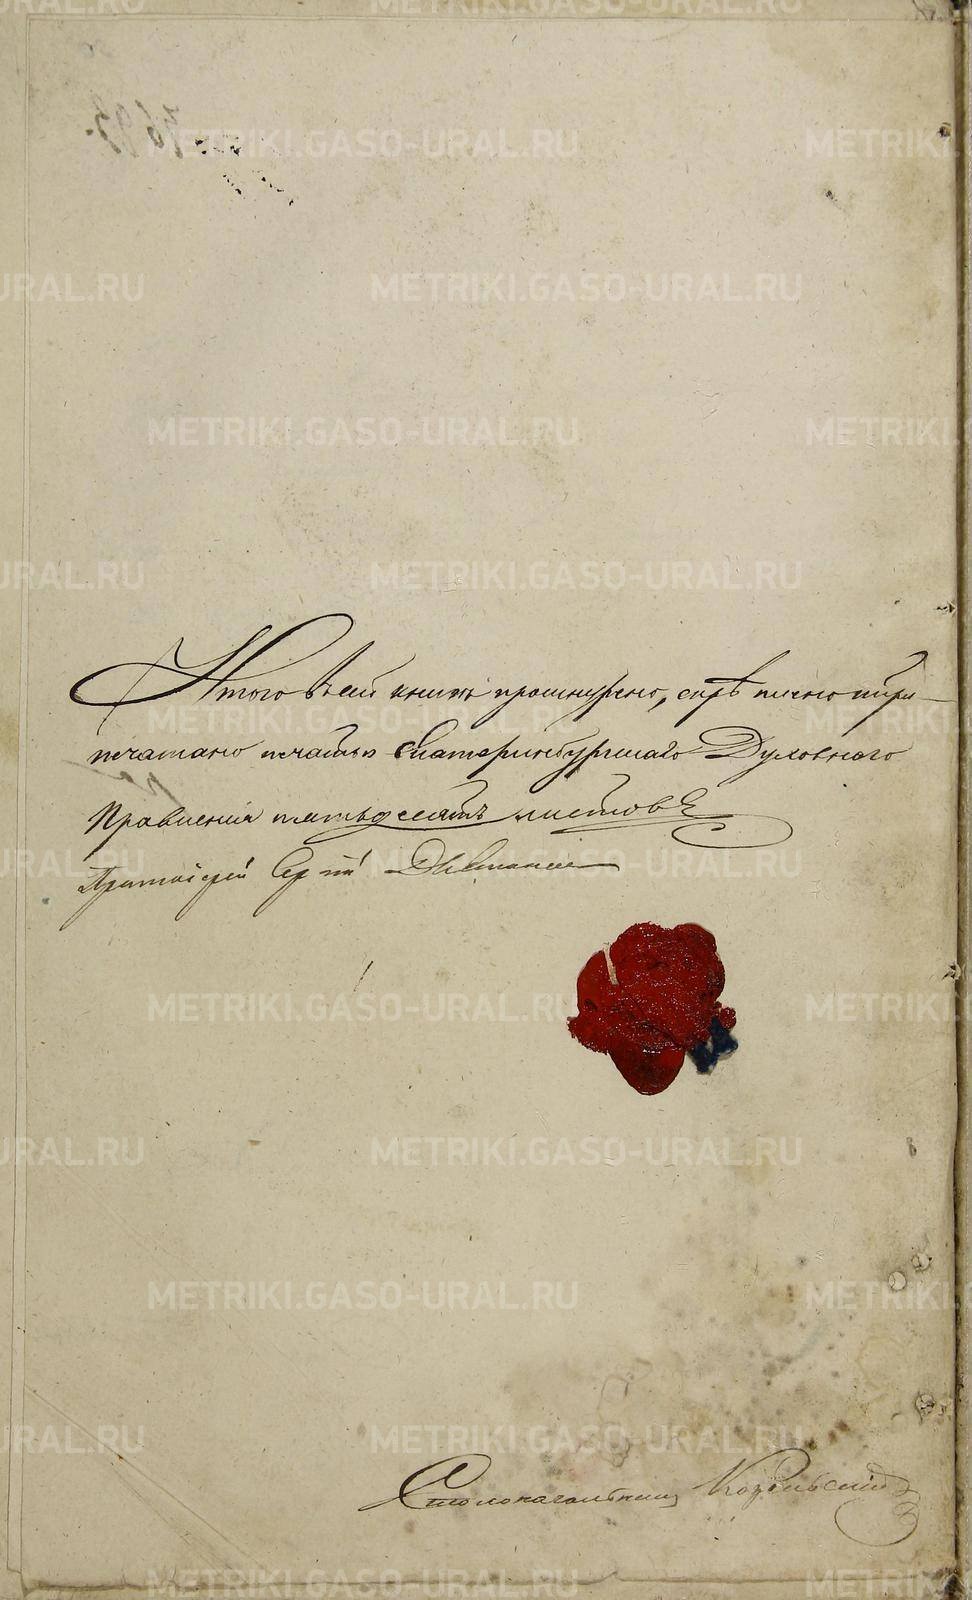 Итого въ сей книгѣ прошнурено, скрѣплено и при-
печатано печатью Екатеринбургскаго Духовнаго
Правленія пятьдесятъ листовъ
Протоіерей Сергій
Столоначальникъ
METRIKI.GASO-URAL.RU